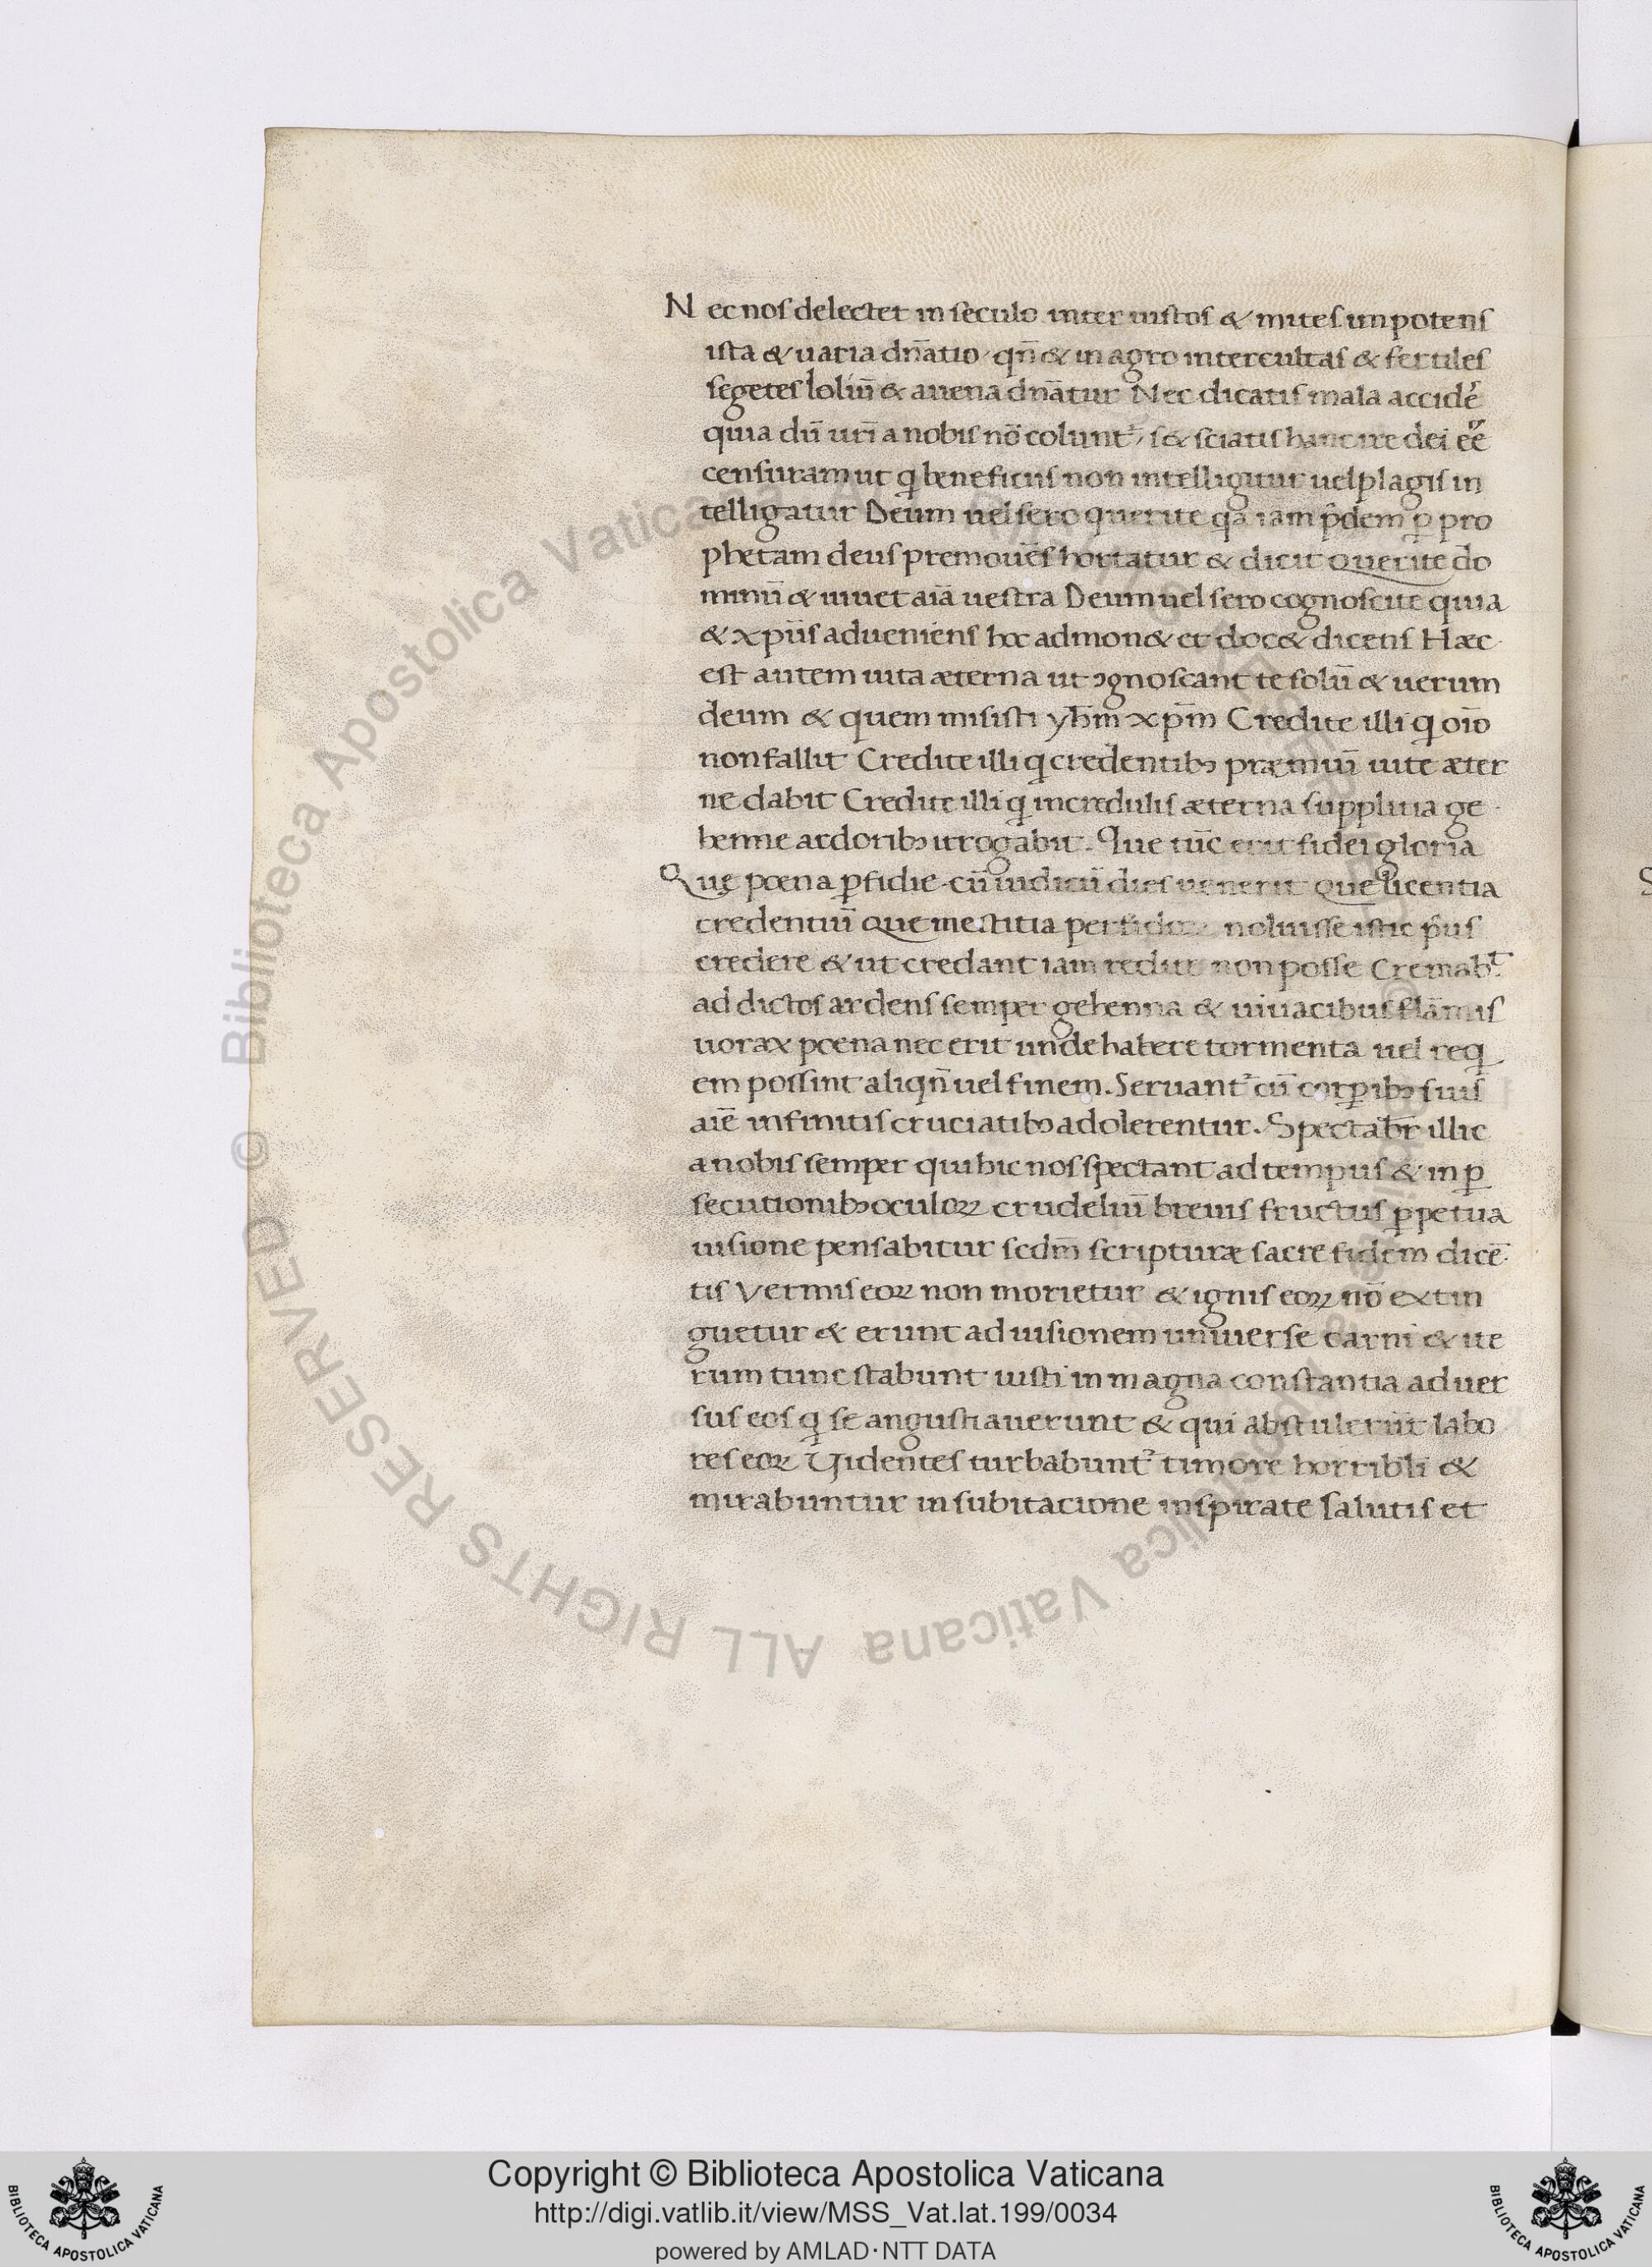 Nec nos delectet in seculo inter iustos & mites impotens
ista & uaria dn̄atio qn̄ & in agro inter cultas & fertiles
segetes loliū & auena dn̄atur Nec dicatis mala accidē
quia dii uri a nobis nō colunt̄ s& sciatis hanc ire dei eē
censuram ut q beneficiis non intelligitur uel plagis in
telligatur Deum uel sero querite qa iam p̄dem ꝑ pro
phetam deus premouēs hortatur & dicit querite do
minū & uiuet aīa uestra Deum uel sero cognoscite quia
& xp̄us adueniens hoc admon& et doc& dicens Hæc
est autem uita æterna ut ꝯgnoscant te solū & uerum
deum & quem misisti yh̄m xp̄m Credite illi q oīo
non fallit Credite illi q credentibꝫ præmiū uite æter
ne dabit Credite illi q incredulis æterna supplitia ge
henne ardoribꝫ irrogabit. Que tūc erit fidei gloria
Quę pœna ꝑfidie cū iudicii dies uenerit que licentia
credentiū que mestitia perfidoꝝ noluisse istic p̄us
credere & ut credant iam redire non posse Cremab̄t
ad dictos ardens semper gehenna & uiuacibus flāmis
uorax pœna nec erit unde habere tormenta uel req
em possint aliqn̄ uel finem. Seruant̄ cū corꝑibꝫ suis
aīe infinitis cruciatibꝫ ad olerentur. Spectab̄r illic
a nobis semper qui hic nos spectant ad tempus & in ꝑ
secutionibꝫ oculoꝝ crudeliū breuis fructus ꝑpetua
uisione pensabitur scdm̄ scripturæ sacre fidem dicē
tis Vermis eoꝝ non morietur & ignis eoꝝ nō extin
guetur & erunt ad uisionem uniuerse carni & ite
rum tunc stabunt iusti in magna constantia aduer
sus eos q se angustiauerunt & qui abstulerūt labo
res eoꝝ Uidentes turbabunt̄ timore horribili &
mirabuntur in subitacione inspirate salutis et
S
© Biblioteca Apostolica Vaticana ALL RIGHTS RESERVED
Copyright © Biblioteca Apostolica Vaticana
http://digi.vatlib.it/view/MSS_Vat.lat.199/0034
powered by AMLAD·NTT DATA
BIBLIOTECA APOSTOLICA VATICANA
BIBLIOTECA APOSTOLICA VATICANA